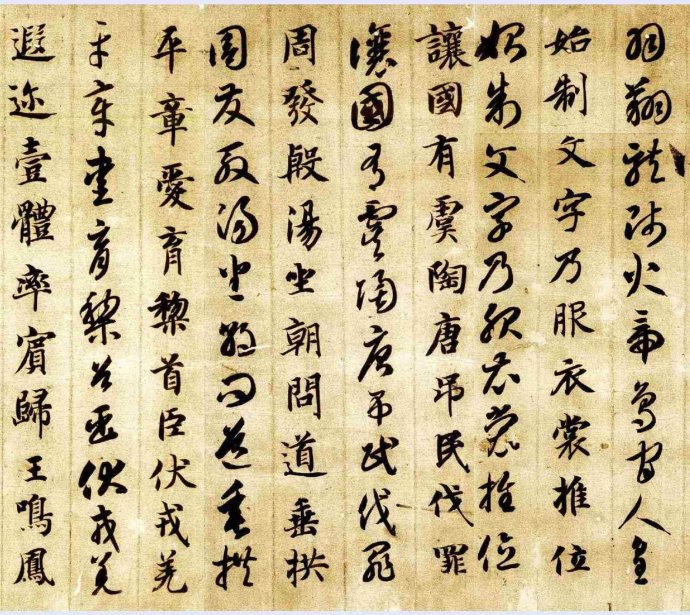 羽翔龍師火帝鳥官人皇
始制文字乃服衣裳推位
始制文字乃服衣裳推位
讓國有虞陶唐吊民伐罪
讓國有虞陶唐吊民伐罪
周發殷湯坐朝問道垂拱
周發殷湯坐朝問道垂拱
平章愛育黎首臣伏戎羌
平章愛育黎首臣伏戎羌
遐迩壹體率賓歸王鳴鳳